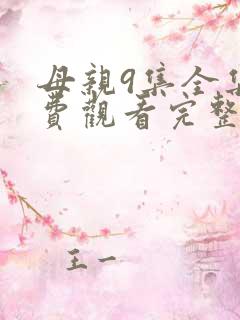 母親9集全集
費觀看完整
王一